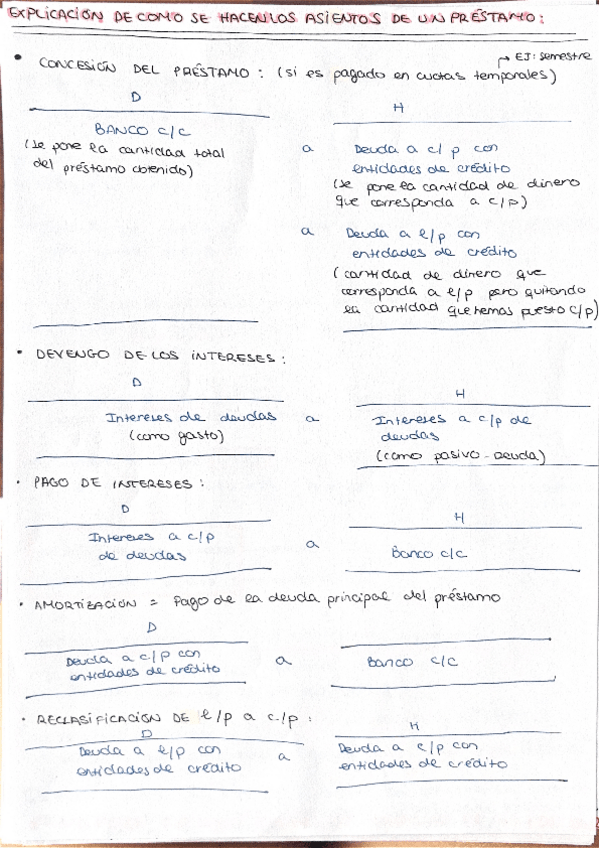 EXPLICACIÓN DE COMO SE HACEN LOS ASIENTOS DE UN PRÉSTAMO:
→ EJ: semestre
• CONCESIÓN DEL PRÉSTAMO: (si es pagado en cuotas temporales)
D H
BANCO c/c a Deuda a c/p con
entidades de crédito
(se pone la cantidad total
del préstamo obtenido)
(se pone la cantidad de dinero
que corresponda a c/p)
a Deuda a l/p con
entidades de crédito
(cantidad de dinero que
corresponda a l/p pero quitando
la cantidad que hemos puesto c/p)
• DEVENGO DE LOS INTERESES:
D H
Intereses de deudas a Intereses a c/p de
deudas
(como gasto) (como pasivo-deuda)
• PAGO DE INTERESES:
D H
Intereses a c/p
de deudas a Banco c/c
• AMORTIZACIÓN = Pago de la deuda principal del préstamo
D
Deuda a c/p con
entidades de crédito a Banco c/c
• RECLASIFICACIÓN DE l/p a c/p:
D H
Deuda a l/p con
entidades de crédito a Deuda a c/p con
entidades de crédito